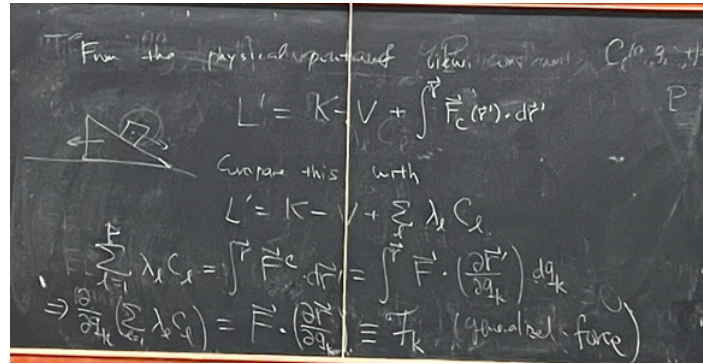 From the physical point of view,
L' = K - V + ∫^{\vec{r}} \vec{F}_c(\vec{r}')·d\vec{r}'
P
Compare this with
L' = K - V + Σ_l λ_l C_l
Σ_{l=1}^{P} λ_l C_l = ∫^{\vec{r}} \vec{F}^c·d\vec{r}' = ∫^{\vec{r}} \vec{F}·(∂\vec{r}'/∂q_k) dq_k
⇒ ∂/∂q_k (Σ_{l=1} λ_l C_l) = \vec{F}·(∂\vec{r}/∂q_k) ≡ F_k (generalized force)